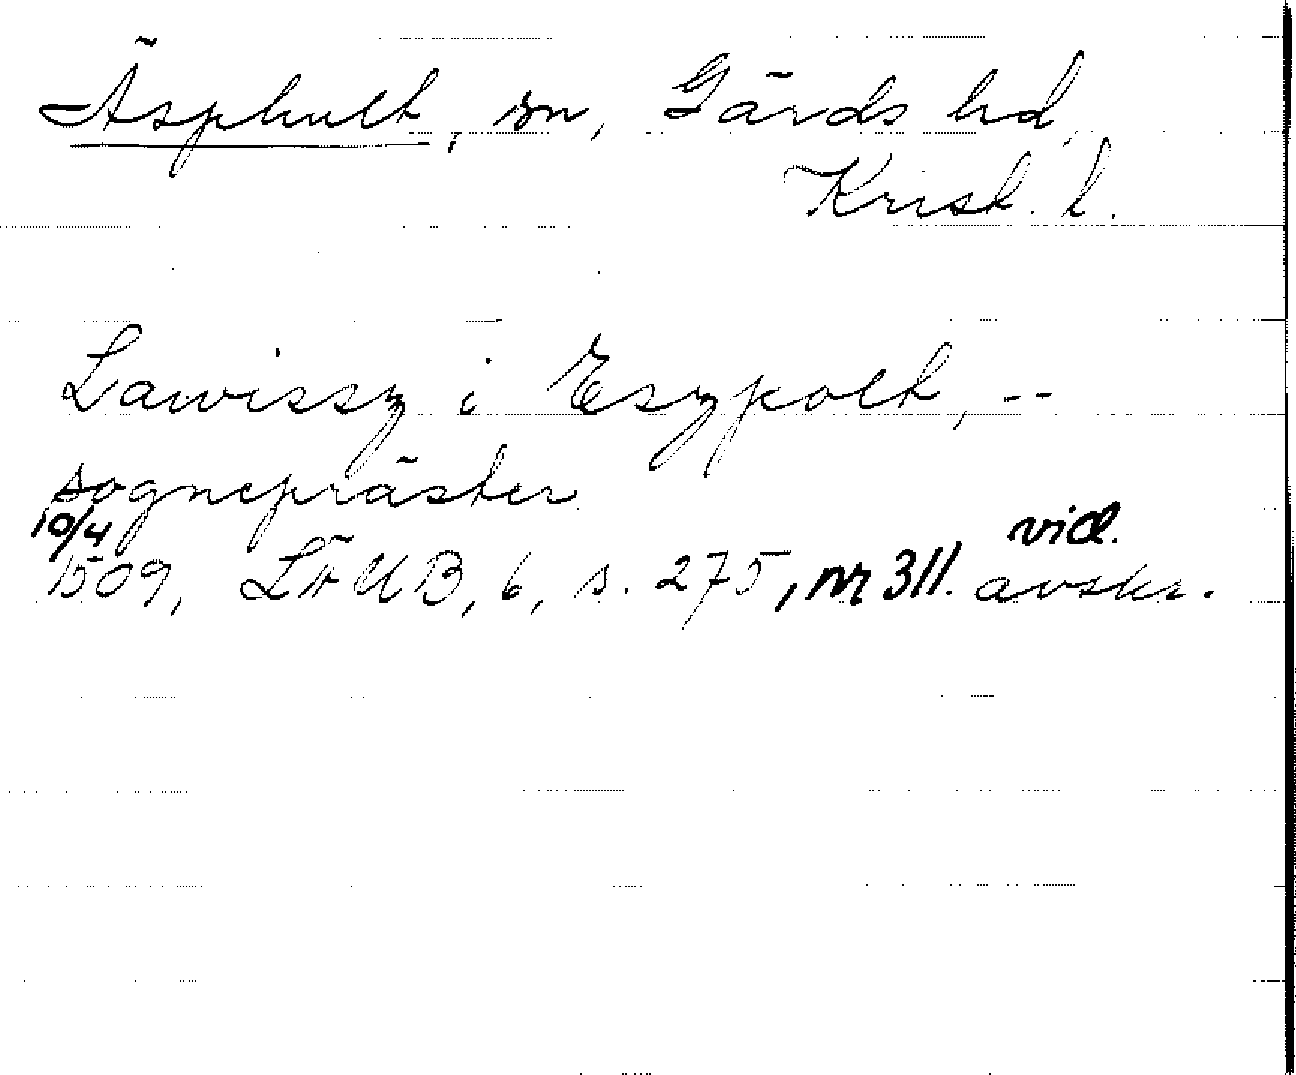 Äsphult, sn, Gärds hd,
Krist. l.
Lawissz i Eszpolt, --
sognepräster
10/4 vid.
1509, LÄUB, 6, s. 275, nr 311. avskr.